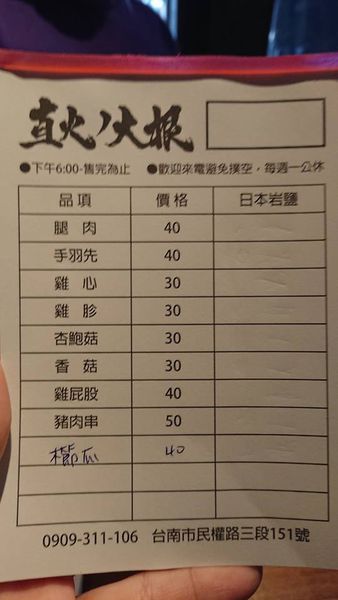 直火ノ大根
●下午6:00-售完為止 ●歡迎來電避免撲空,每週一公休
品項 價格 日本岩鹽
腿肉 40
手羽先 40
雞心 30
雞胗 30
杏鮑菇 30
香菇 30
雞屁股 40
豬肉串 50
櫛瓜 40
0909-311-106 台南市民權路三段151號